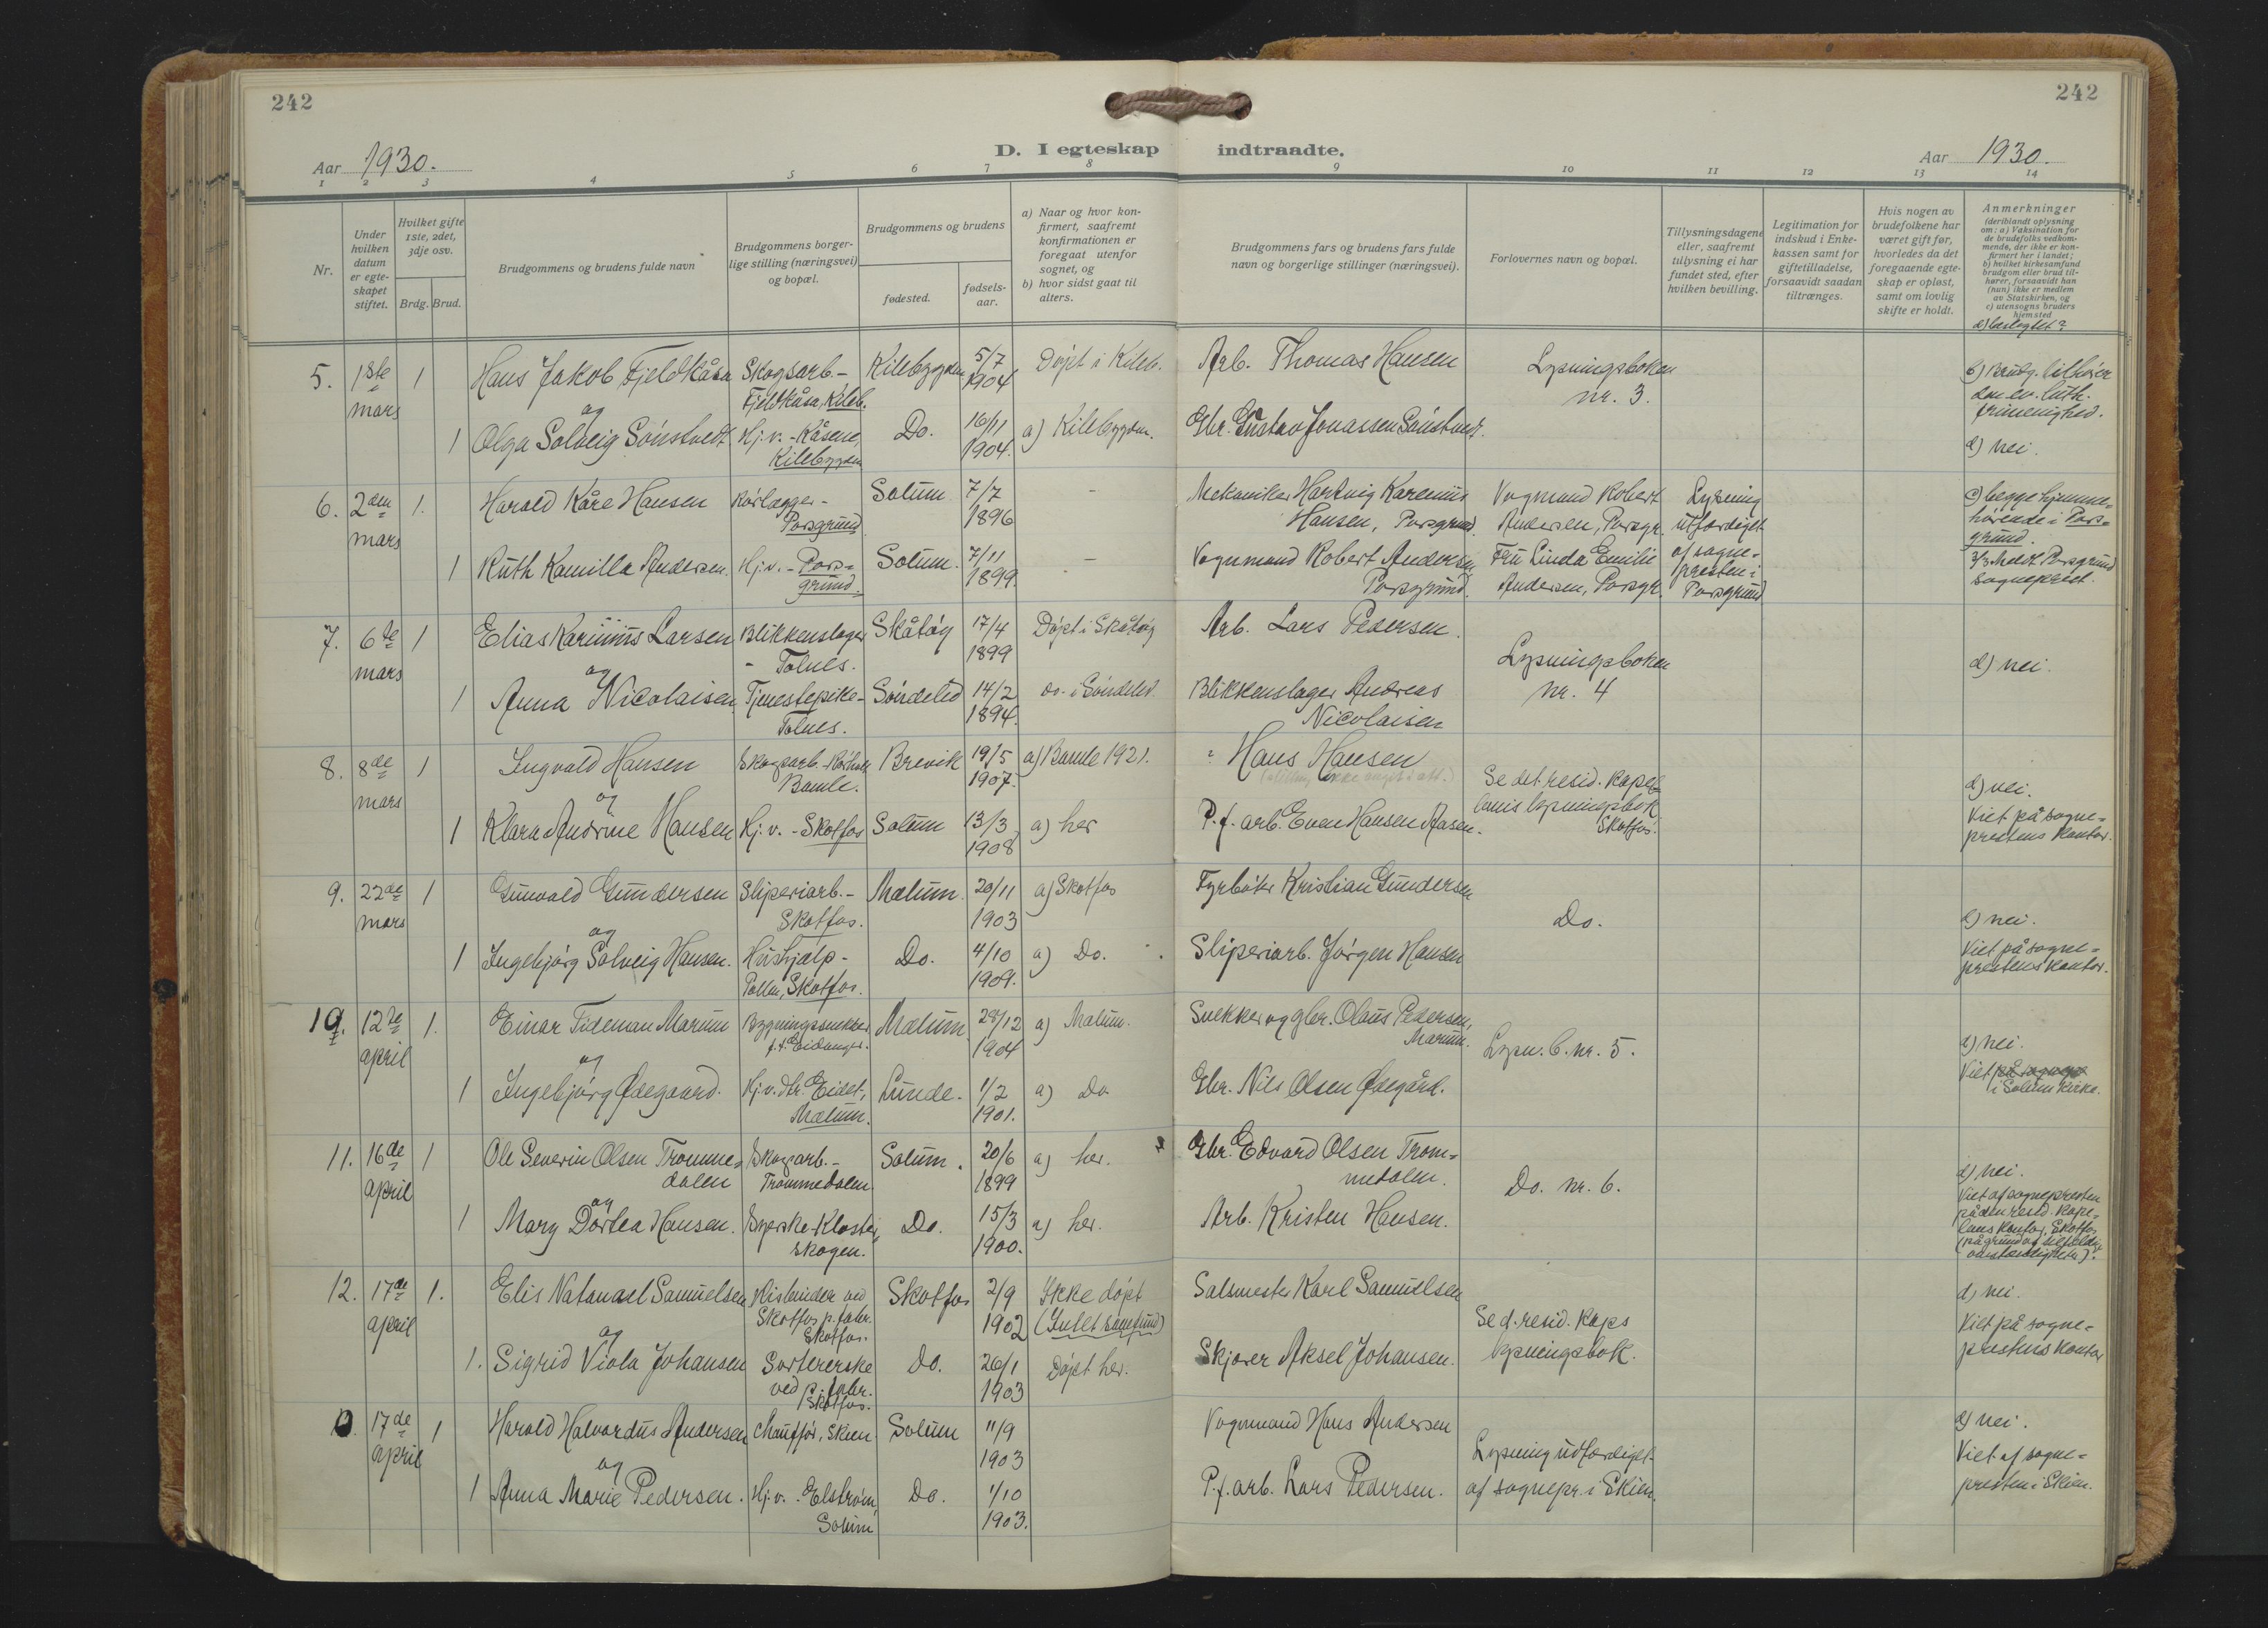 242
242
D. I egteskap indtraadte.
Aar 1930.
Aar 1930.
1 2 3 4 5 6 7 8 9 10 11 12 13 14
Nr.
Under hvilken datum er egteskapet stiftet.
Hvilket gifte 1ste, 2det, 3dje osv.
Brdg. Brud.
Brudgommens og brudens fulde navn
Brudgommens borgerlige stilling (næringsvei) og bopæl.
Brudgommens og brudens
fødested.
fødselsaar.
a) Naar og hvor konfirmert, saafremt konfirmationen er foregaat utenfor sognet, og
b) hvor sidst gaat til alters.
Brudgommens fars og brudens fars fulde navn og borgerlige stillinger (næringsvei).
Forlovernes navn og bopæl.
Tillysningsdagene eller, saafremt tillysning ei har fundet sted, efter hvilken bevilling.
Legitimation for indskud i Enkekassen samt for giftetilladelse, forsaavidt saadan tiltrænges.
Hvis nogen av brudefolkene har været gift før, hvorledes da det foregaaende egteskap er opløst, samt om lovlig skifte er holdt.
Anmerkninger
(deriblandt oplysning om: a) Vaksination for de brudefolks vedkommende, der ikke er konfirmert her i landet; b) hvilket kirkesamfund brudgom eller brud tilhører, forsaavidt han (hun) ikke er medlem av Statskirken, og c) utensogns bruders hjemsted
d) beslegtet?
5. 1ste mars 1 Hans Jakob Fjeldkåsa Skogsarb. - Fjeldkåsa, Kileb. Kilebygden 5/7 1904 Døpt i Kileb. Arb. Thomas Hansen Lysningsboken nr. 3. b) Brudg. tilhører den ev. luth. frimenighed.
og
1 Olga Solveig Sønstvedt Hj.v. - Kåsene, Kilebygden Do. 16/11 1904. a) Kilebygden. Gbr. Gustav Jonassen Sønstvedt. d) nei.
6. 2den mars 1. Harald Kåre Hansen Rørlægger - Porsgrund Solum 7/7 1896 - Mekaniker Hartvig Karenius Hansen, Porsgrund. Vognmand Robert Andersen, Porsgr. Lysning utfærdiget c) begge hjemmehørende i Porsgrund.
1 Ruth Kamilla Andersen. Hj.v. - Porsgrund. Solum. 7/11 1899. - Vognmand Robert Andersen, Porsgrund. Fru Linda Emilie Andersen, Porsgr. af sognepresten i Porsgrund 3/3 Meldt Porsgrund sogneprest.
7. 6te mars 1 Elias Karinius Larsen Blikkenslager - Tolnes. Skåtøy 17/4 1899 Døpt i Skåtøy Arb. Lars Pedersen. Lysningsboken nr. 4 d) nei.
og
1 Anna Nicolaisen, Tjenestepike - Tolnes. Søndeled 14/2 1894. do. i Søndeled. Blikkenslager Andreas Nicolaisen
8. 8de mars 1 Ingvald Hansen Skogsarb. - Bamle. Brevik 19/5 1907. a) Bamle 1921. Hans Hansen Se det resid. kapellanis lysningsbok Skotfos. d) nei.
og
1 Klara Andrine Hansen Hj.v. - Skotfos Solum 13/3 1908 a) her P.f. arb. Even Hansen Aasen. Viet på sogneprestens kontor.
9. 22de mars 1 Gunvald Gundersen Sliperiarb. - Skotfos. Mælum. 20/11 1903 a) Skotfos Fyrbøter Kristian Gundersen Do. d) nei.
og
1 Ingebjørg Solveig Hansen. Hushjælp - Pollen, Skotfos. Do. 4/10 1909. a) Do. Sliperiarb. Jørgen Hansen Viet på sogneprestens kontor.
10. 12te april 1. Einar Tideman Marum Bygningssnekker f.t. Eidanger. Mælum 29/12 1904 a) Mælum. Snekker og gbr. Olaus Pedersen, Marum. Lysn.b. nr. 5. d) nei.
og
1 Ingebjørg Ødegaard. Hj.v. dtr. Eidet, Mælum. Lunde. 1/2 1901. a) Do. Gbr. Nils Olsen Ødegård. Viet i Solum kirke.
11. 16de april 1 Ole Severin Olsen Trommedalen Skogsarb. - Trommedalen Solum. 20/6 1899 a) her. Gbr. Edvard Olsen Trommedalen. Do. nr. 6. d) nei.
og
1 Mary Dortea Hansen. Syerske - Klosterskogen. Do. 15/3 1900. a) her. Arb. Kristen Hansen. Viet af sognepresten på den resid. kapellans kontor, Skotfos (på grund af tilfældige omstændigheter).
12. 17de april 1. Elis Natanael Samuelsen Risbinder ved Skotfos p.fabr. Skotfos. Skotfos 2/9 1902 Ikke døpt (Intet samfund) Salsmester Karl Samuelsen Se d. resid. kaps lysningsbok. d) nei.
og
1. Sigrid Viola Johansen Sortererske ved p.fabr. Skotfos. Do. 26/1 1903 Døpt her. Skjører Aksel Johansen. Viet på sogneprestens kontor
0. 17de april 1 Harald Halvardus Andersen Chauffør, Skien Solum 11/9 1903 Vognmand Hans Andersen Lysning utfærdiget af sognepr. i Skien. d) nei.
og
1 Anna Marie Pedersen. Hj.v. - Elstrøm, Solum Do. 1/10 1903. P.f. arb. Lars Pedersen. Viet af sognepresten i Skien.